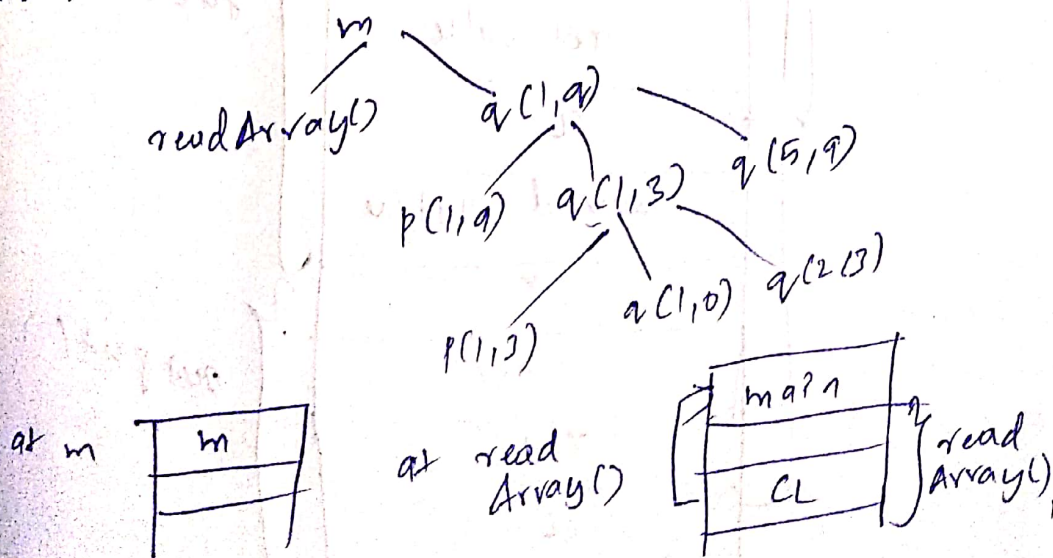 m
readArray()
q(1,9)
q(5,9)
p(1,9)
q(1,3)
q(2,3)
q(1,0)
p(1,3)
at m
m
at read
Array()
main
CL
read
Array()